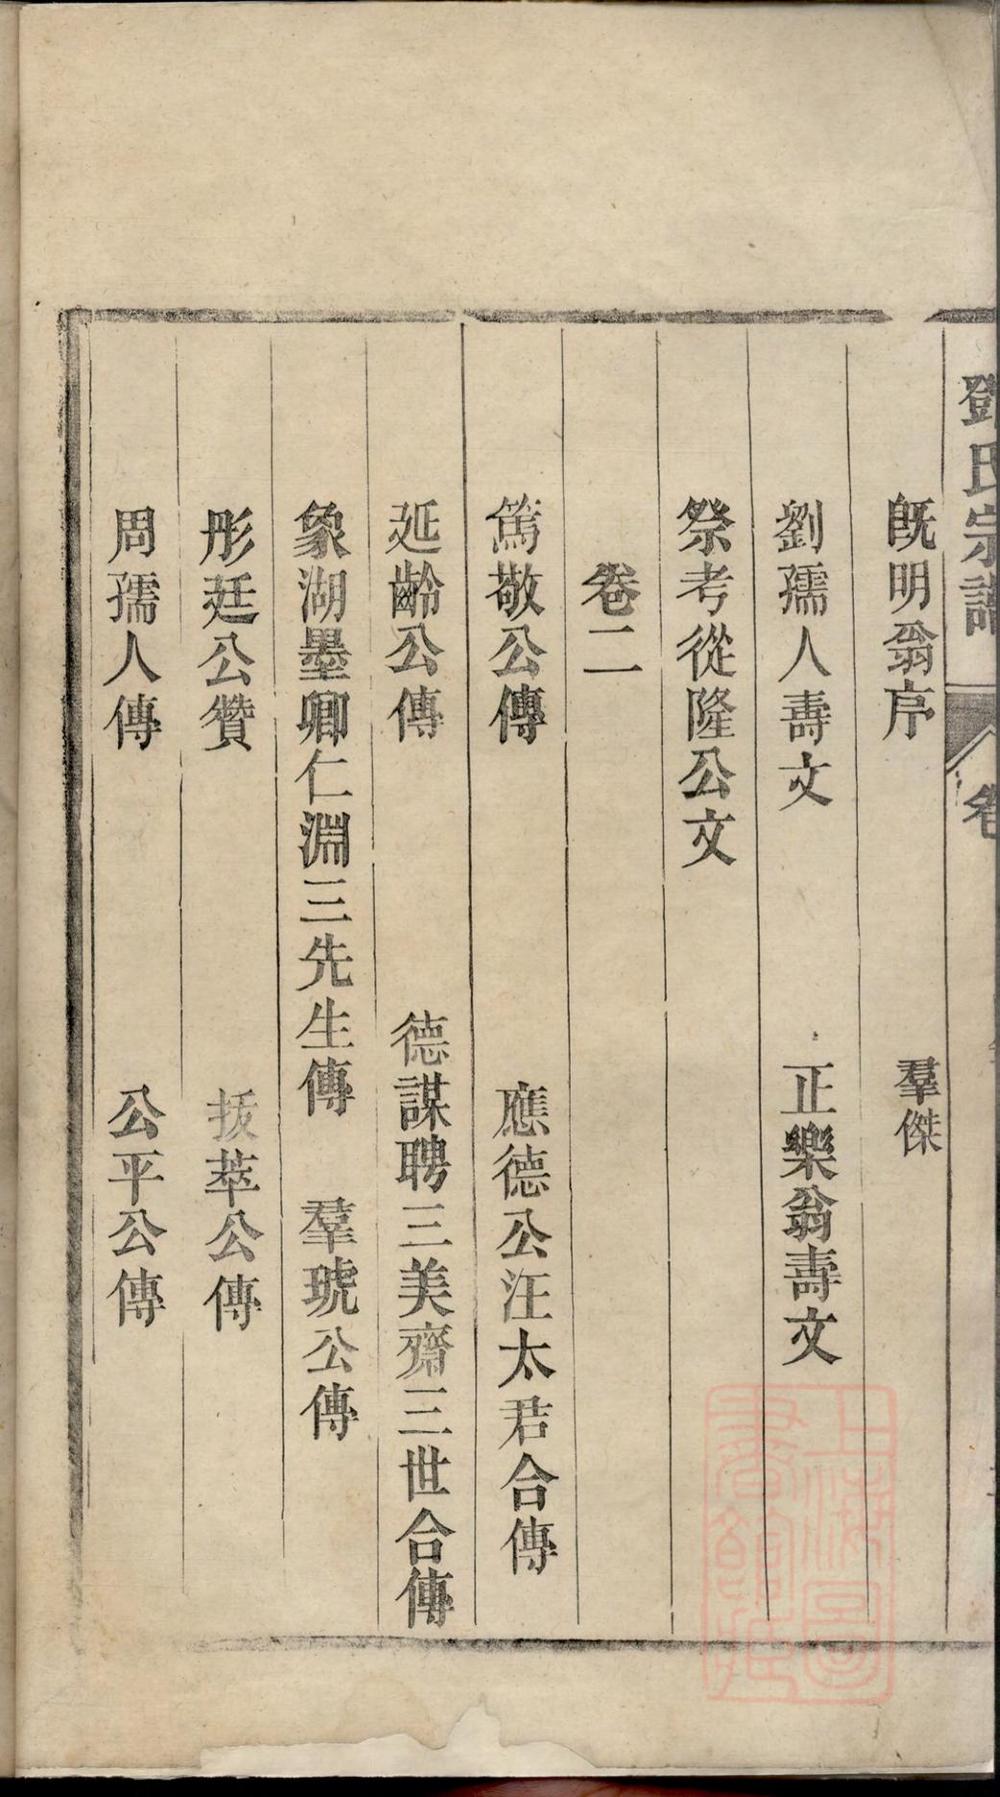 鄧氏宗譜 卷
既明翁序 羣傑
劉孺人壽文 正樂翁壽文
祭考從隆公文
卷二
篤敬公傳 應德公汪太君合傳
延齡公傳 德謀聘三美齋三世合傳
象湖墨卿仁淵三先生傳 羣琥公傳
彤廷公贊 拔萃公傳
周孺人傳 公平公傳